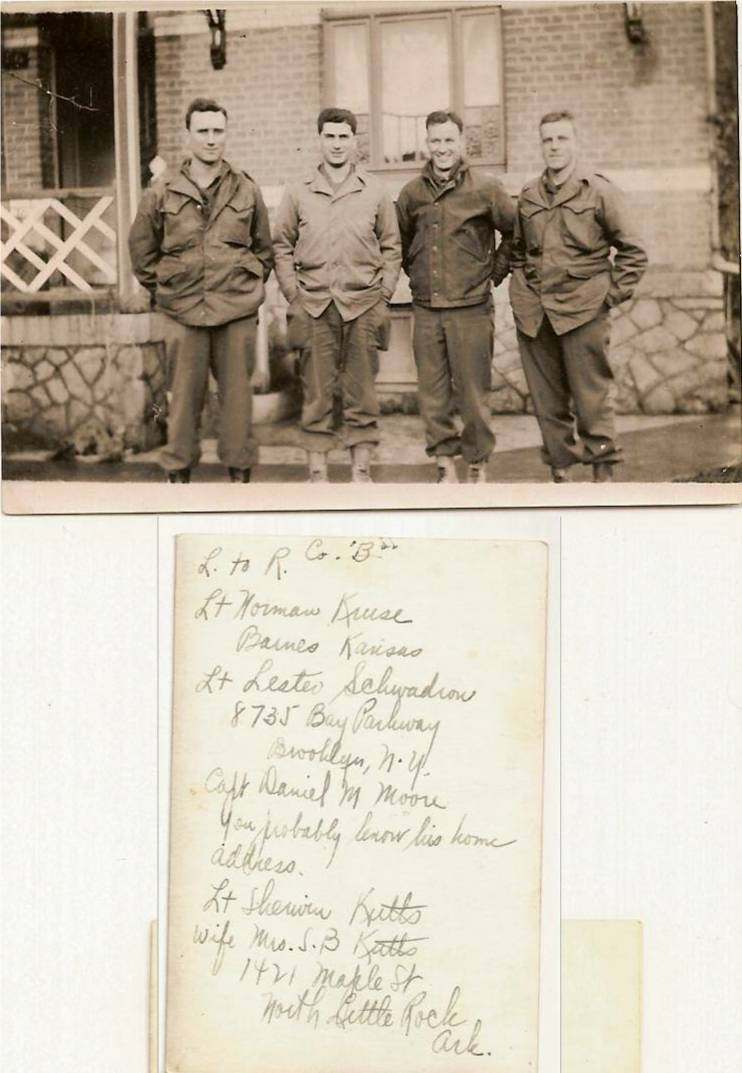 L. to R. Co. "B"
Lt Norman Kruse
Barnes Kansas
Lt Lester Schwadron
8735 Bay Parkway
Brooklyn, N.Y.
Capt Daniel M Moore
you probably know his home
address.
Lt Sherwin Kutts
wife Mrs. S. B Kutts
1421 Maple St
North Little Rock
Ark.